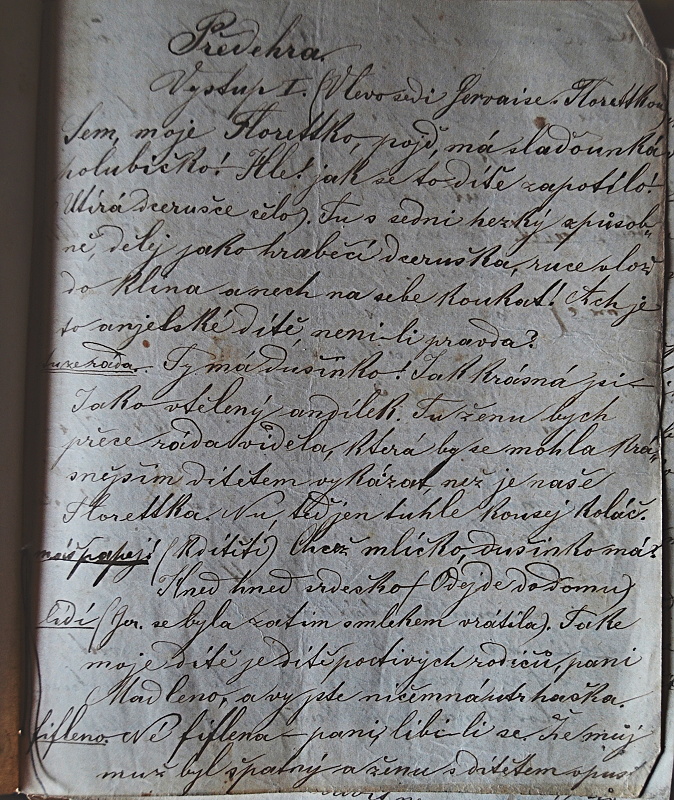 Předehra.
Výstup I. (Vlevo sedi Gervaise. Florettkou
Sem, moje Florettko, pojď, má sladounká
holubičko! Hle! jak se to dítě zapotilo!
Utírá dcerušce čelo). Tu s sedni hezky způsob-
ně, dělej jako hraběčí dceruška, ruce vlož
do klína a nech na sebe koukat! Ach je
to anjelské dítě, není-li pravda?
Ty má dušinko! Jak krásná jsi –
Jako vtělený andílek. Tu ženu bych
přece ráda viděla, která by se mohla krá-
snějším dítětem vykázat, než je naše
Florettka. Nu, teď jen tuhle kousej koláč.
papej! (K dítěti) Chceš mlíčko, dušinko má?
Hned hned srdéčko (Odejde do domu)
lidí (Ger. se byla zatím s mlékem vrátila). Také
moje dítě je dítě poctivých rodičů, paní
Madleno, a vy jste ničemná utrhačka.
fiflena. Ne fiflena – paní, libí-li se. Že můj
muž byl špatný a ženu s dítětem opus